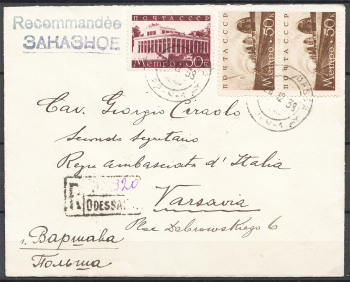 Recommandée
ЗАКАЗНОЕ
ПОЧТА СССР
Метро 30к
ПОЧТА СССР
Метро 50к
ПОЧТА СССР
Метро 50к
12 38
12 38
Cav. Giorgio Ceraolo
Secondo Segretario
Regia ambasciata d'Italia
R 320
ODESSA
Varsavia
Plac Dabrowskiego 6
г. Варшава
Польша